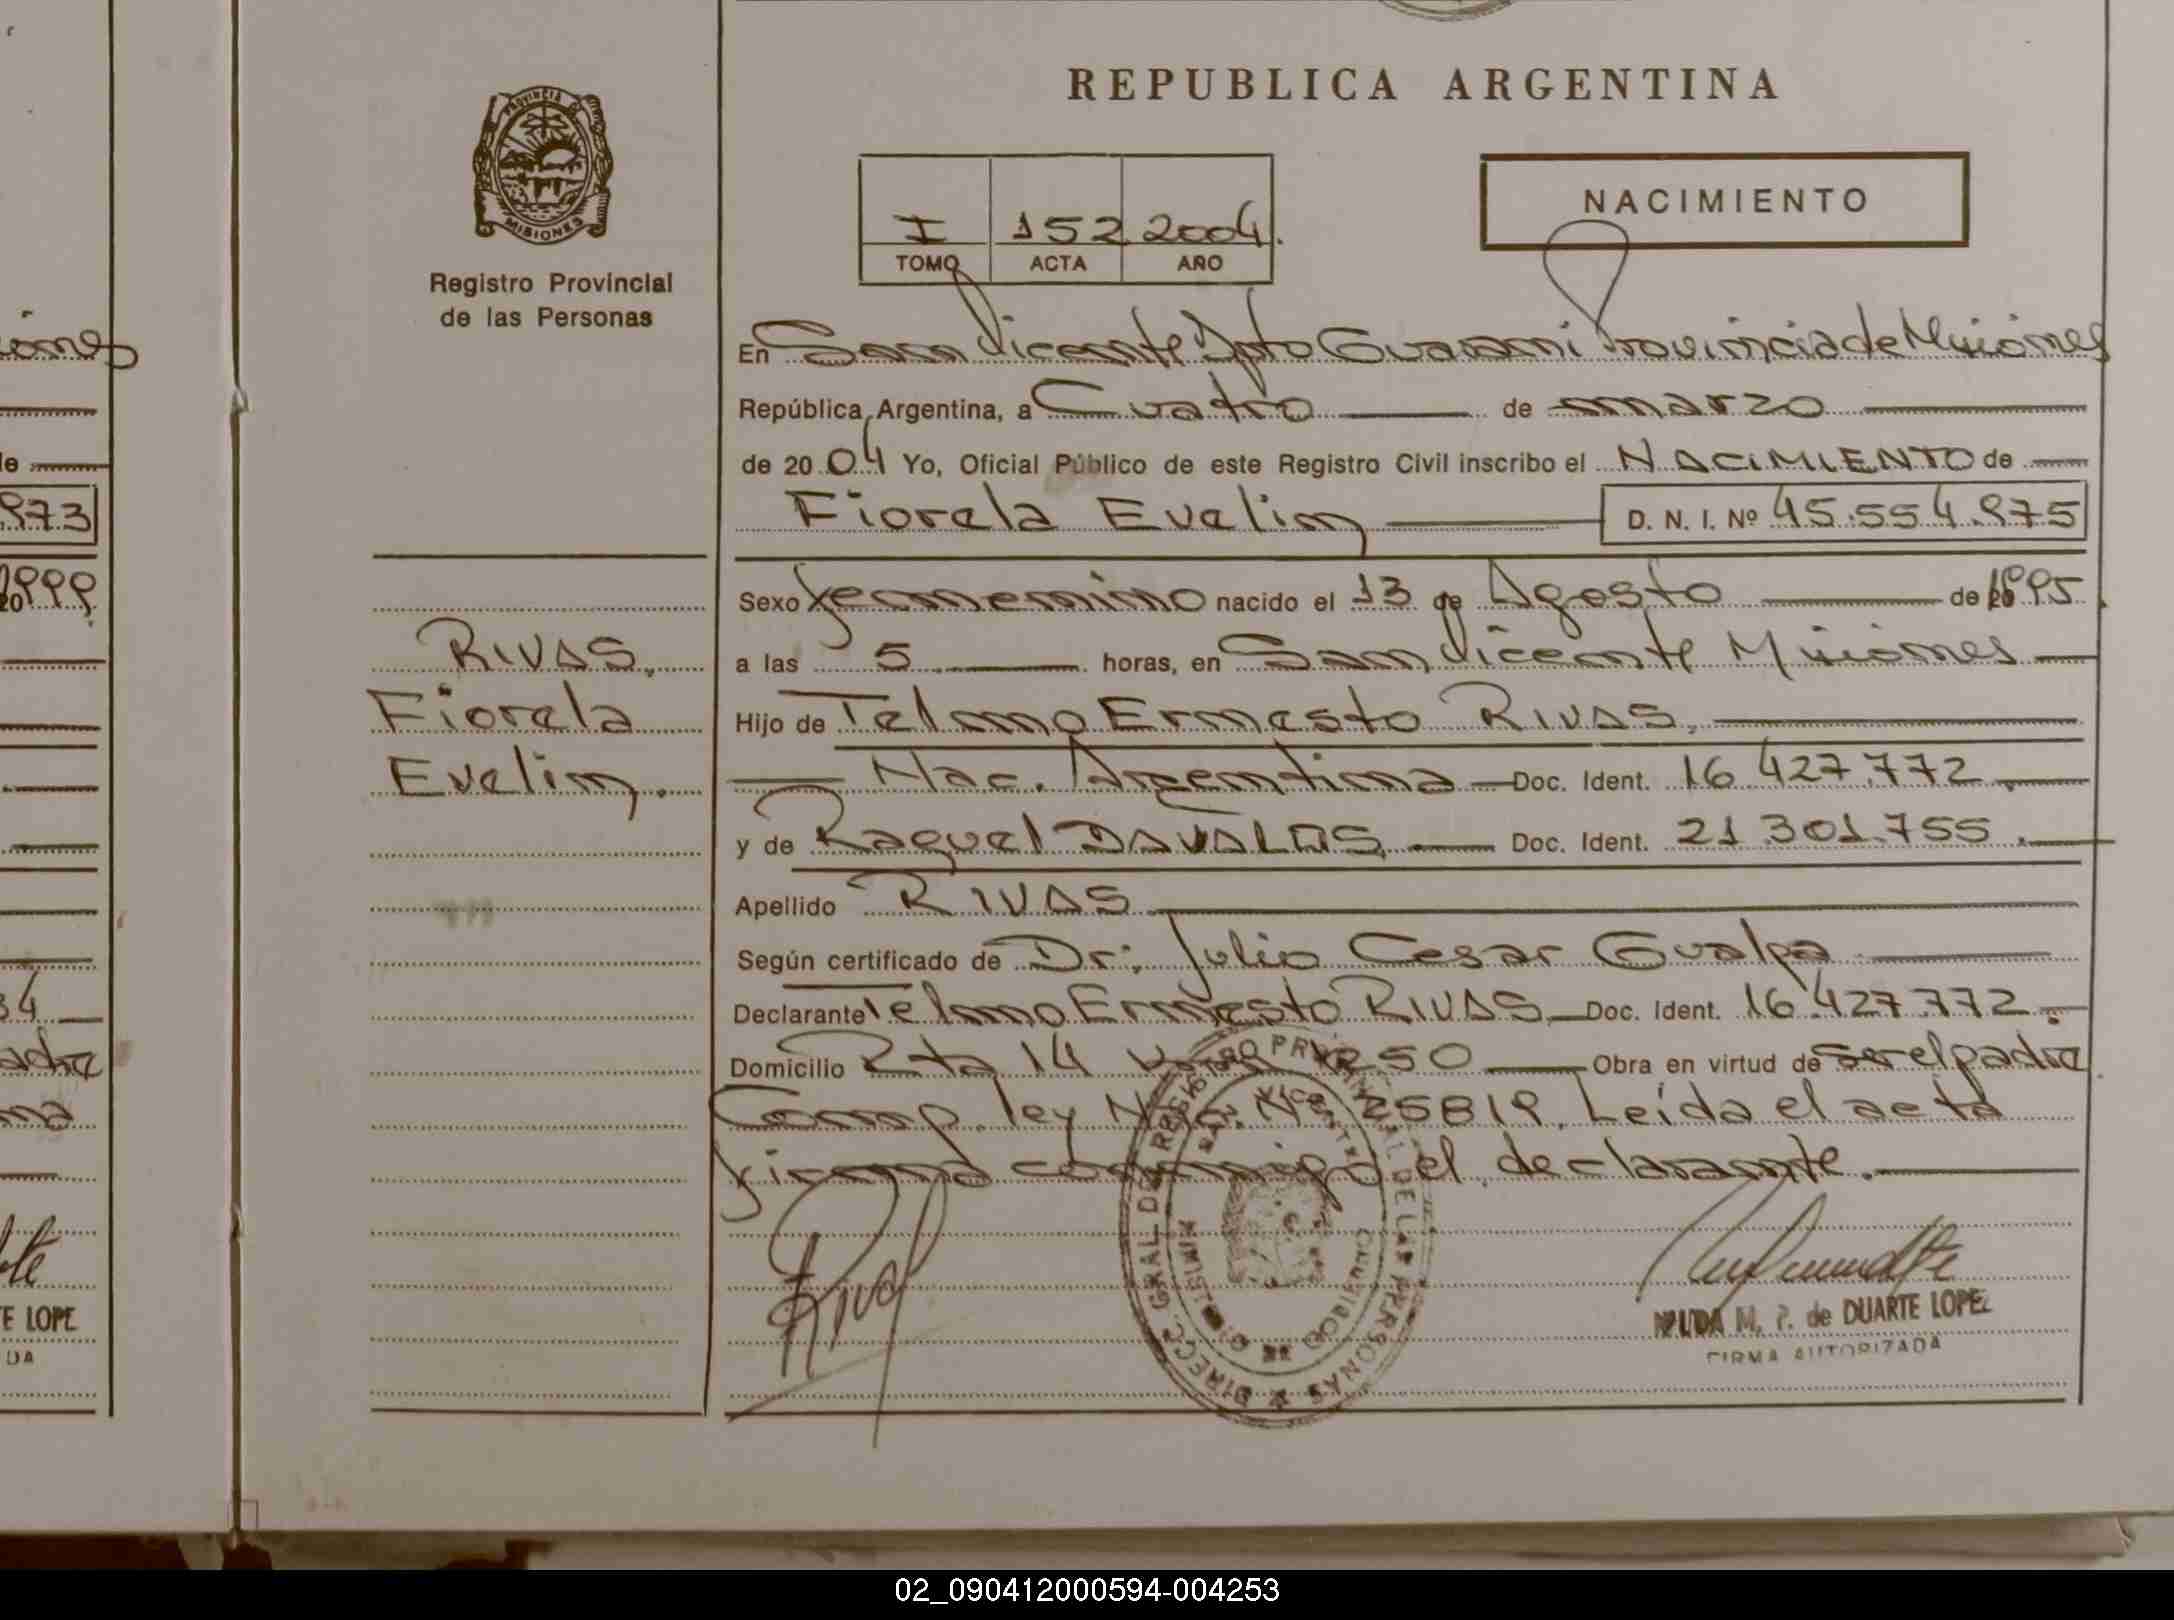 REPUBLICA ARGENTINA
PROVINCIA DE
MISIONES
Registro Provincial
de las Personas
I 152 2004.
TOMO ACTA AÑO
NACIMIENTO
En San Vicente Dpto Guarani Provincia de Misiones
República Argentina, a Cuatro de marzo
de 2004 Yo, Oficial Público de este Registro Civil inscribo el NACIMIENTO de
Fiorela Evelin D. N. I. Nº 45.554.975
Sexo femenino nacido el 13 de Agosto de 1995
a las 5 horas, en San Vicente Misiones
Hijo de Telmo Ernesto RIVAS,
Nac. Argentina Doc. Ident. 16.427.772
y de Raquel DAVALOS Doc. Ident. 21.301.755.
Apellido RIVAS
Según certificado de Dr: Julio Cesar Gualpa
Declarante Telmo Ernesto RIVAS Doc. Ident. 16.427.772.
Domicilio Rta 14 1250 Obra en virtud de ser el padre
Comp. ley Nac. Nº 25819. Leída el acta
firma conmigo el declarante.
RIVAS,
Fiorela
Evelin.
Rivas
DIRECC. GRAL DE REGISTRO PROVINCIAL DE LAS PERSONAS
SAN VICENTE
M. P. de DUARTE LOPEZ
FIRMA AUTORIZADA
iones
de
973
1999.
34
adre
ma
TE LOPE
DA
02_090412000594-004253